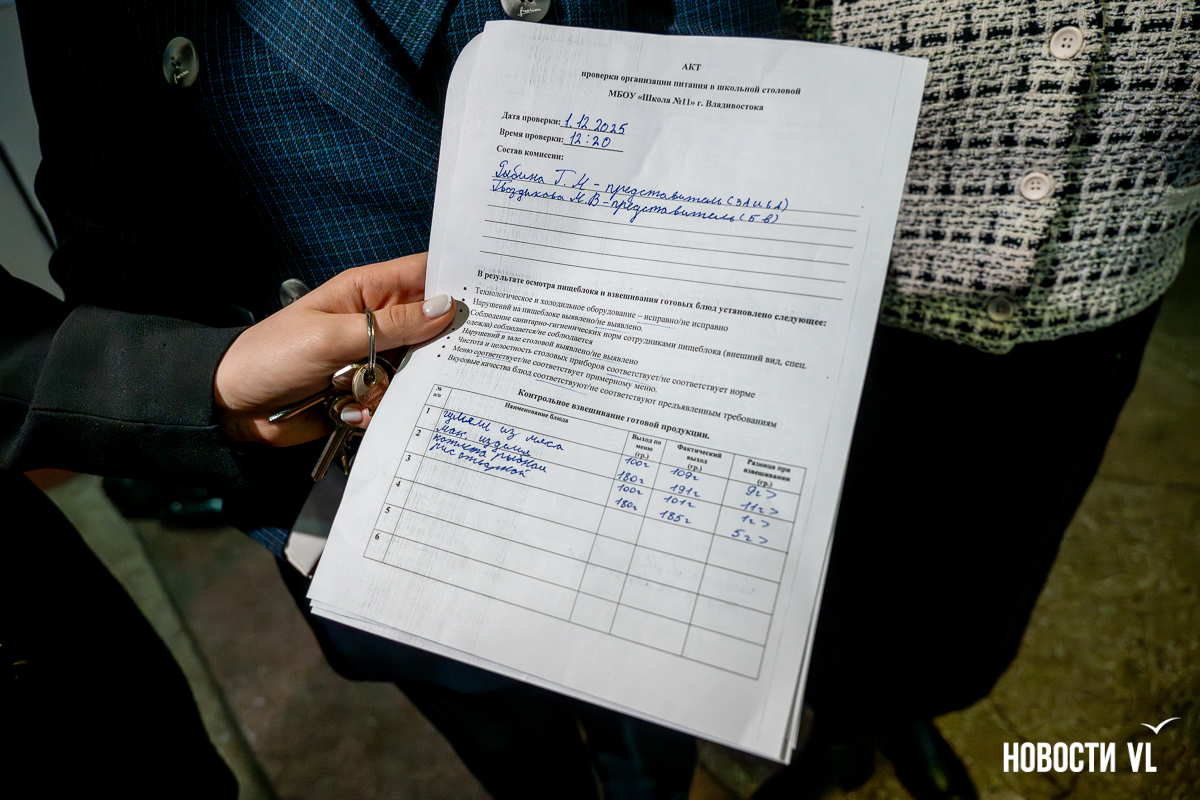 АКТ
проверки организации питания в школьной столовой
МБОУ «Школа №11» г. Владивостока
Дата проверки: 1.12.2025
Время проверки: 12:20
Состав комиссии:
Рыбина Г. М - представитель (3А и 6А)
Гвоздикова М. В - представитель (5 В)
В результате осмотра пищеблока и взвешивания готовых блюд установлено следующее:
• Технологическое и холодильное оборудование – исправно/не исправно
• Нарушений на пищеблоке выявлено/не выявлено.
• Соблюдение санитарно-гигиенических норм сотрудниками пищеблока (внешний вид, спец.
одежда) соблюдается/не соблюдается
• Нарушений в зале столовой выявлено/не выявлено
• Чистота и целостность столовых приборов соответствует/не соответствует норме
• Меню соответствует/не соответствует примерному меню.
• Вкусовые качества блюд соответствуют/не соответствуют предъявленным требованиям
Контрольное взвешивание готовой продукции.
№ п/п Наименование блюда Выход по меню (гр.) Фактический выход (гр.) Разница при взвешивании (гр.)
1 гуляш из мяса 100г 109г 9г >
2 мак. изделия 180г 191г 11г >
3 котлета рыбная 100г 101г 1г >
рис отварной 180г 185г 5г >
4
5
6
НОВОСТИ VL